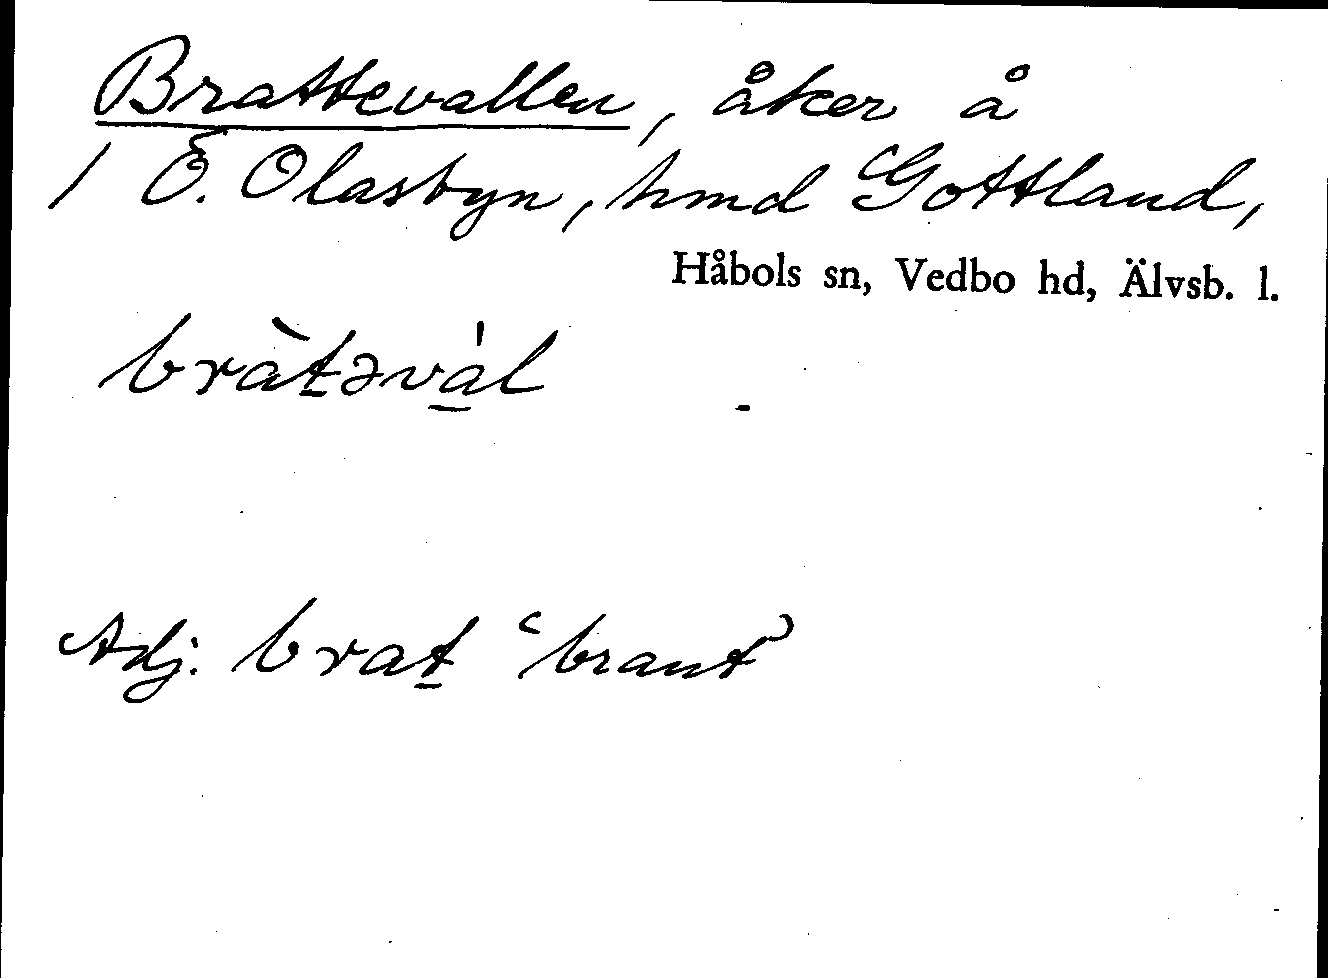 Brattevallen, åker å
1 Ö. Olasbyn, hmd Gottland,
Håbols sn, Vedbo hd, Älvsb. l.
bràt̲əvá̲l
Adj. brat̲ ‘brant’